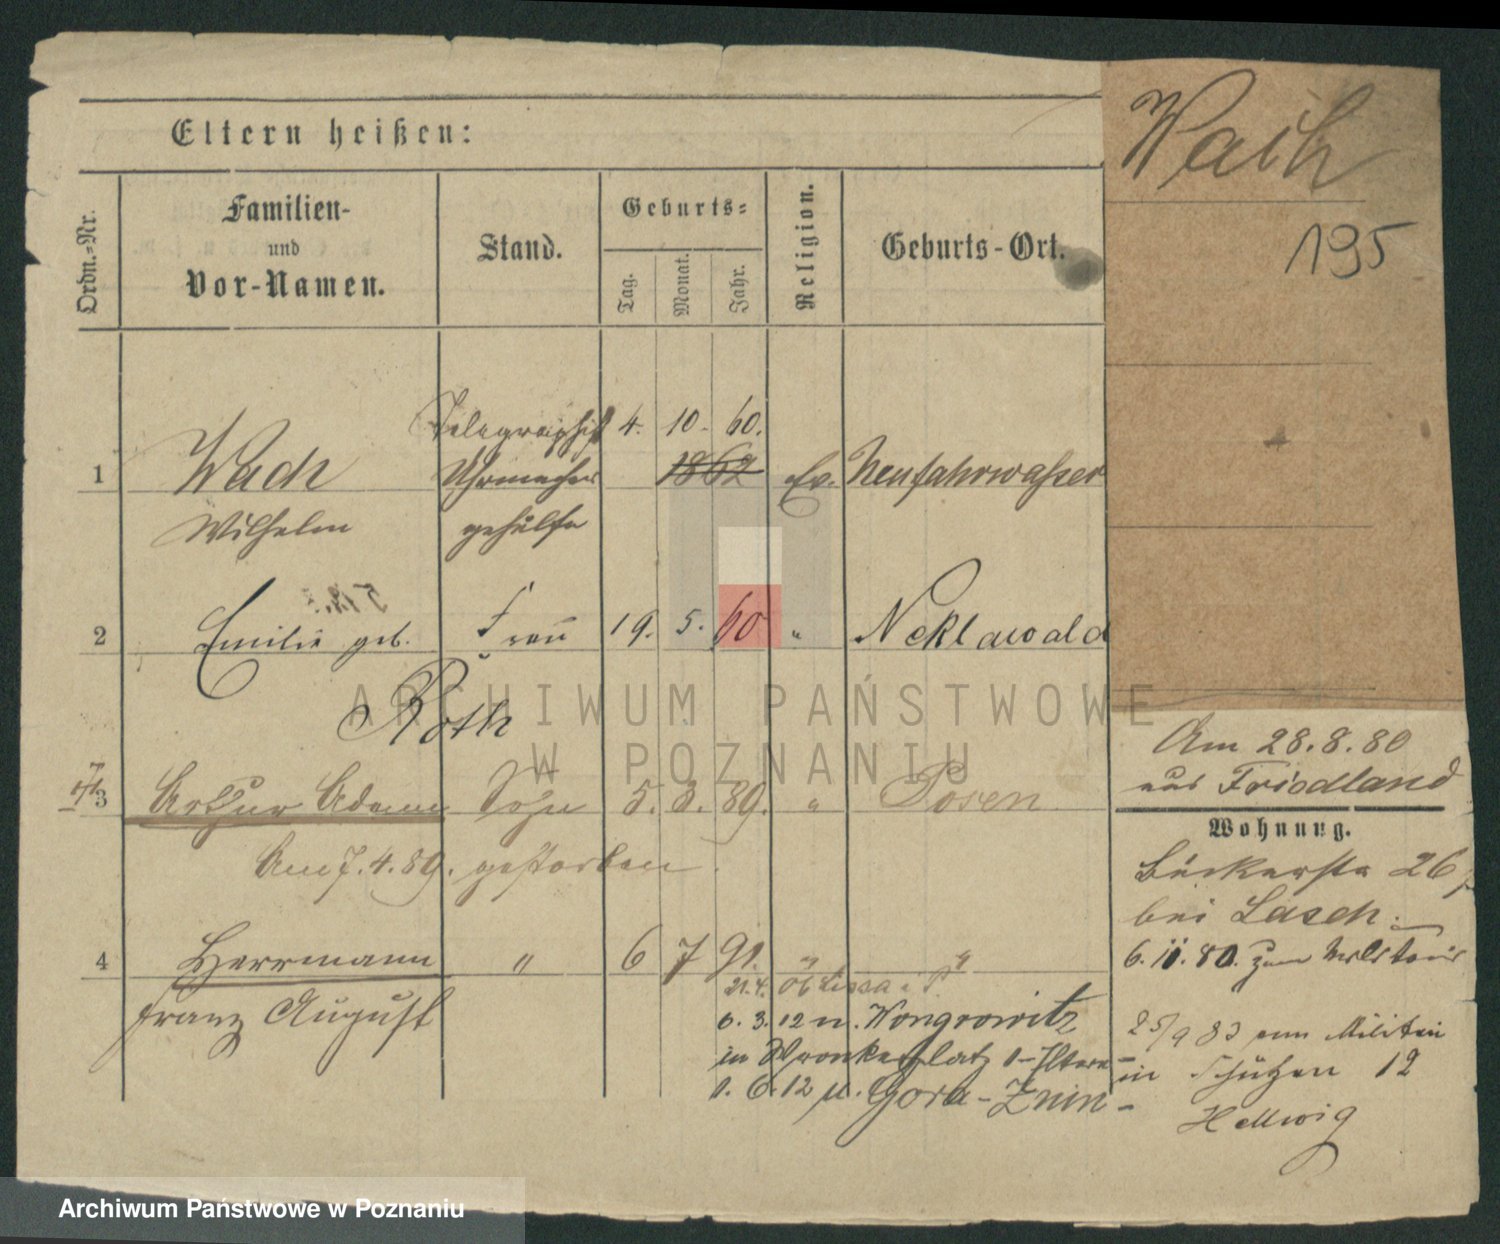 Eltern heißen:
Wach
195
Ordn.-Nr.
Familien-
und
Vor-Namen.
Stand.
Geburts-
Tag.
Monat.
Jahr.
Religion.
Geburts-Ort.
Telegraphist 4. 10. 60.
1 Wach Uhrmacher 1862 Ev. Neufahrwasser
Wilhelm gehülfe
2 Emilie geb. Frau 19. 5. 60 " Neklawald
Roth
3 Arthur Adam Sohn 5. 3. 89. " Posen
Am 7. 4. 89. gestorben.
4 Herrmann " 6 7 91. " "
Franz August
21.4. Lissa i P.
6. 3. 12 n. Wongrowitz
in Wronkerplatz 1 - Eltern
1. 6. 12 u. Gora - Znin -
Am 28.8.80
aus Friedland
Wohnung.
Bäckerstr 26
bei Lasch.
6. 11. 80. zum Militair
25/9 83 vom Militair
in Schützen 12
Hellwig
ARCHIWUM PAŃSTWOWE
W POZNANIU
Archiwum Państwowe w Poznaniu